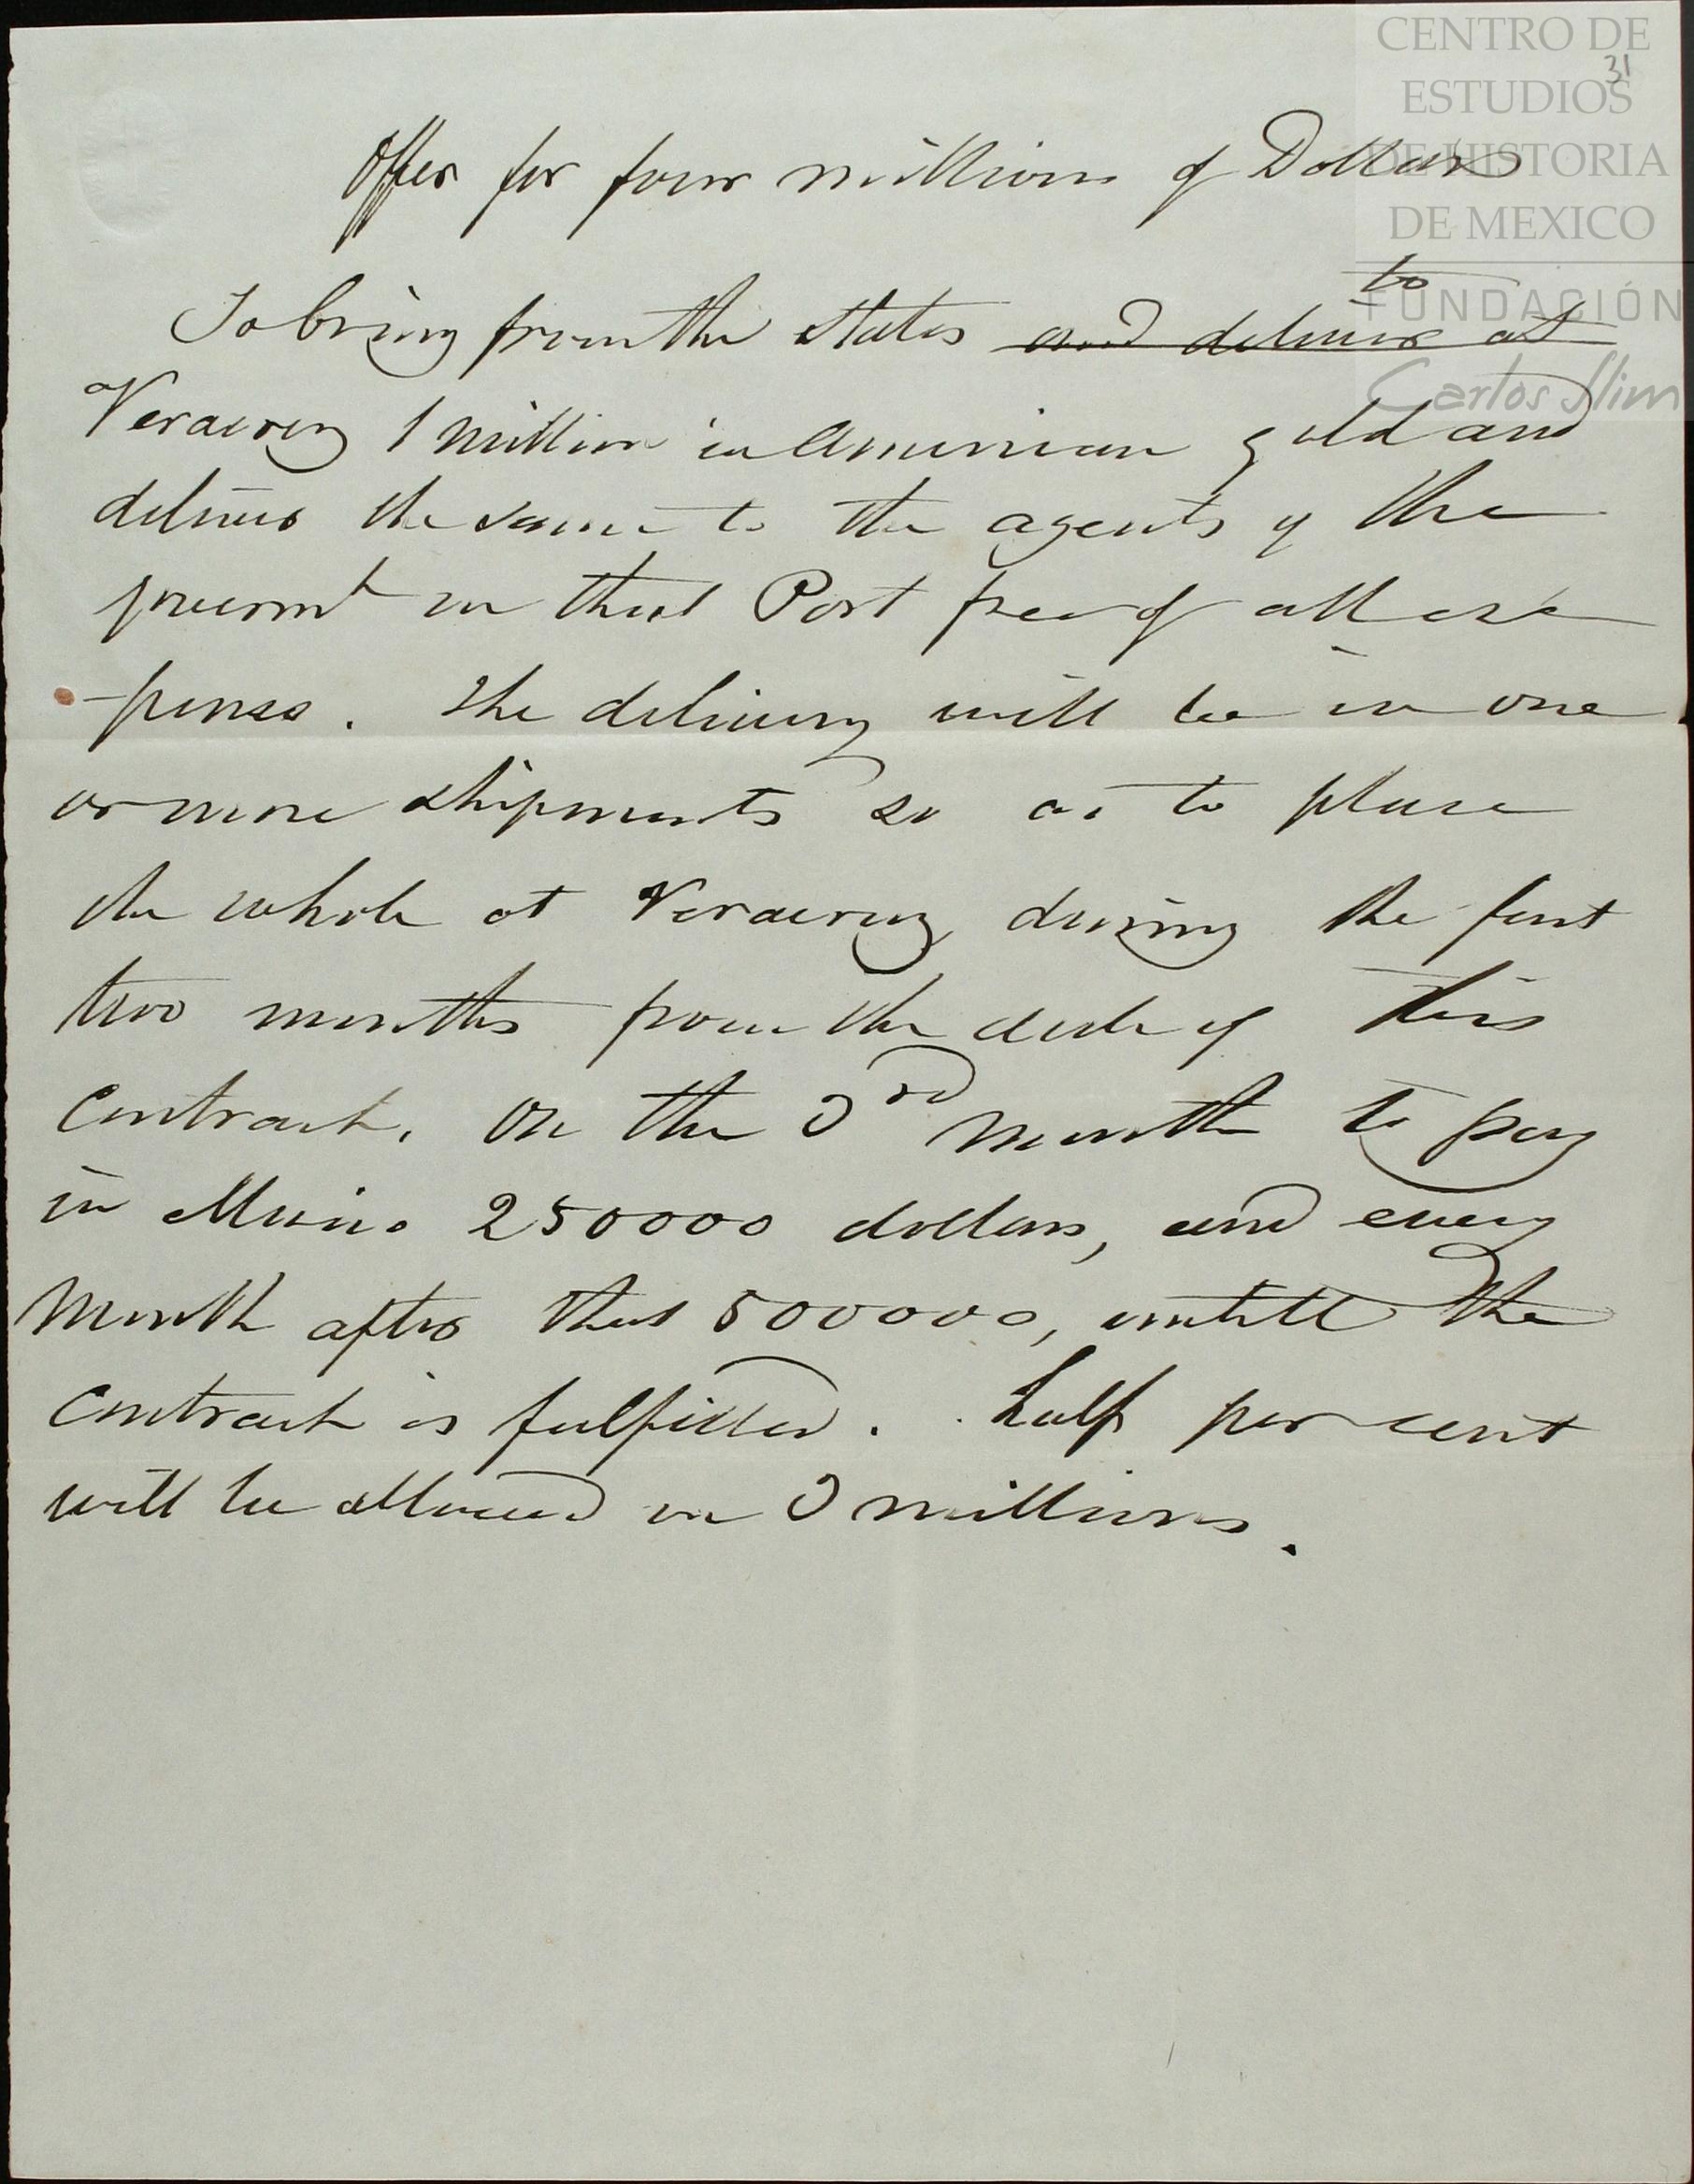 CENTRO DE
ESTUDIOS
DE HISTORIA
DE MEXICO
FUNDACIÓN
Carlos Slim
31
Offer for four millions of Dollars
to
To bring from the States and deliver at
Veracruz 1 million in American gold and
deliver the same to the agents of the
in that Port free of all ex
-penses. The delivery will be in one
or more shipments so as to place
the whole at Veracruz during the first
two months from the date of this
Contract. On the 3rd month to pay
in Mexico 250000 dollars, and every
Month after that 500000, untill the
Contract is fulfilled. half per cent
will be allowed on 3 millions.